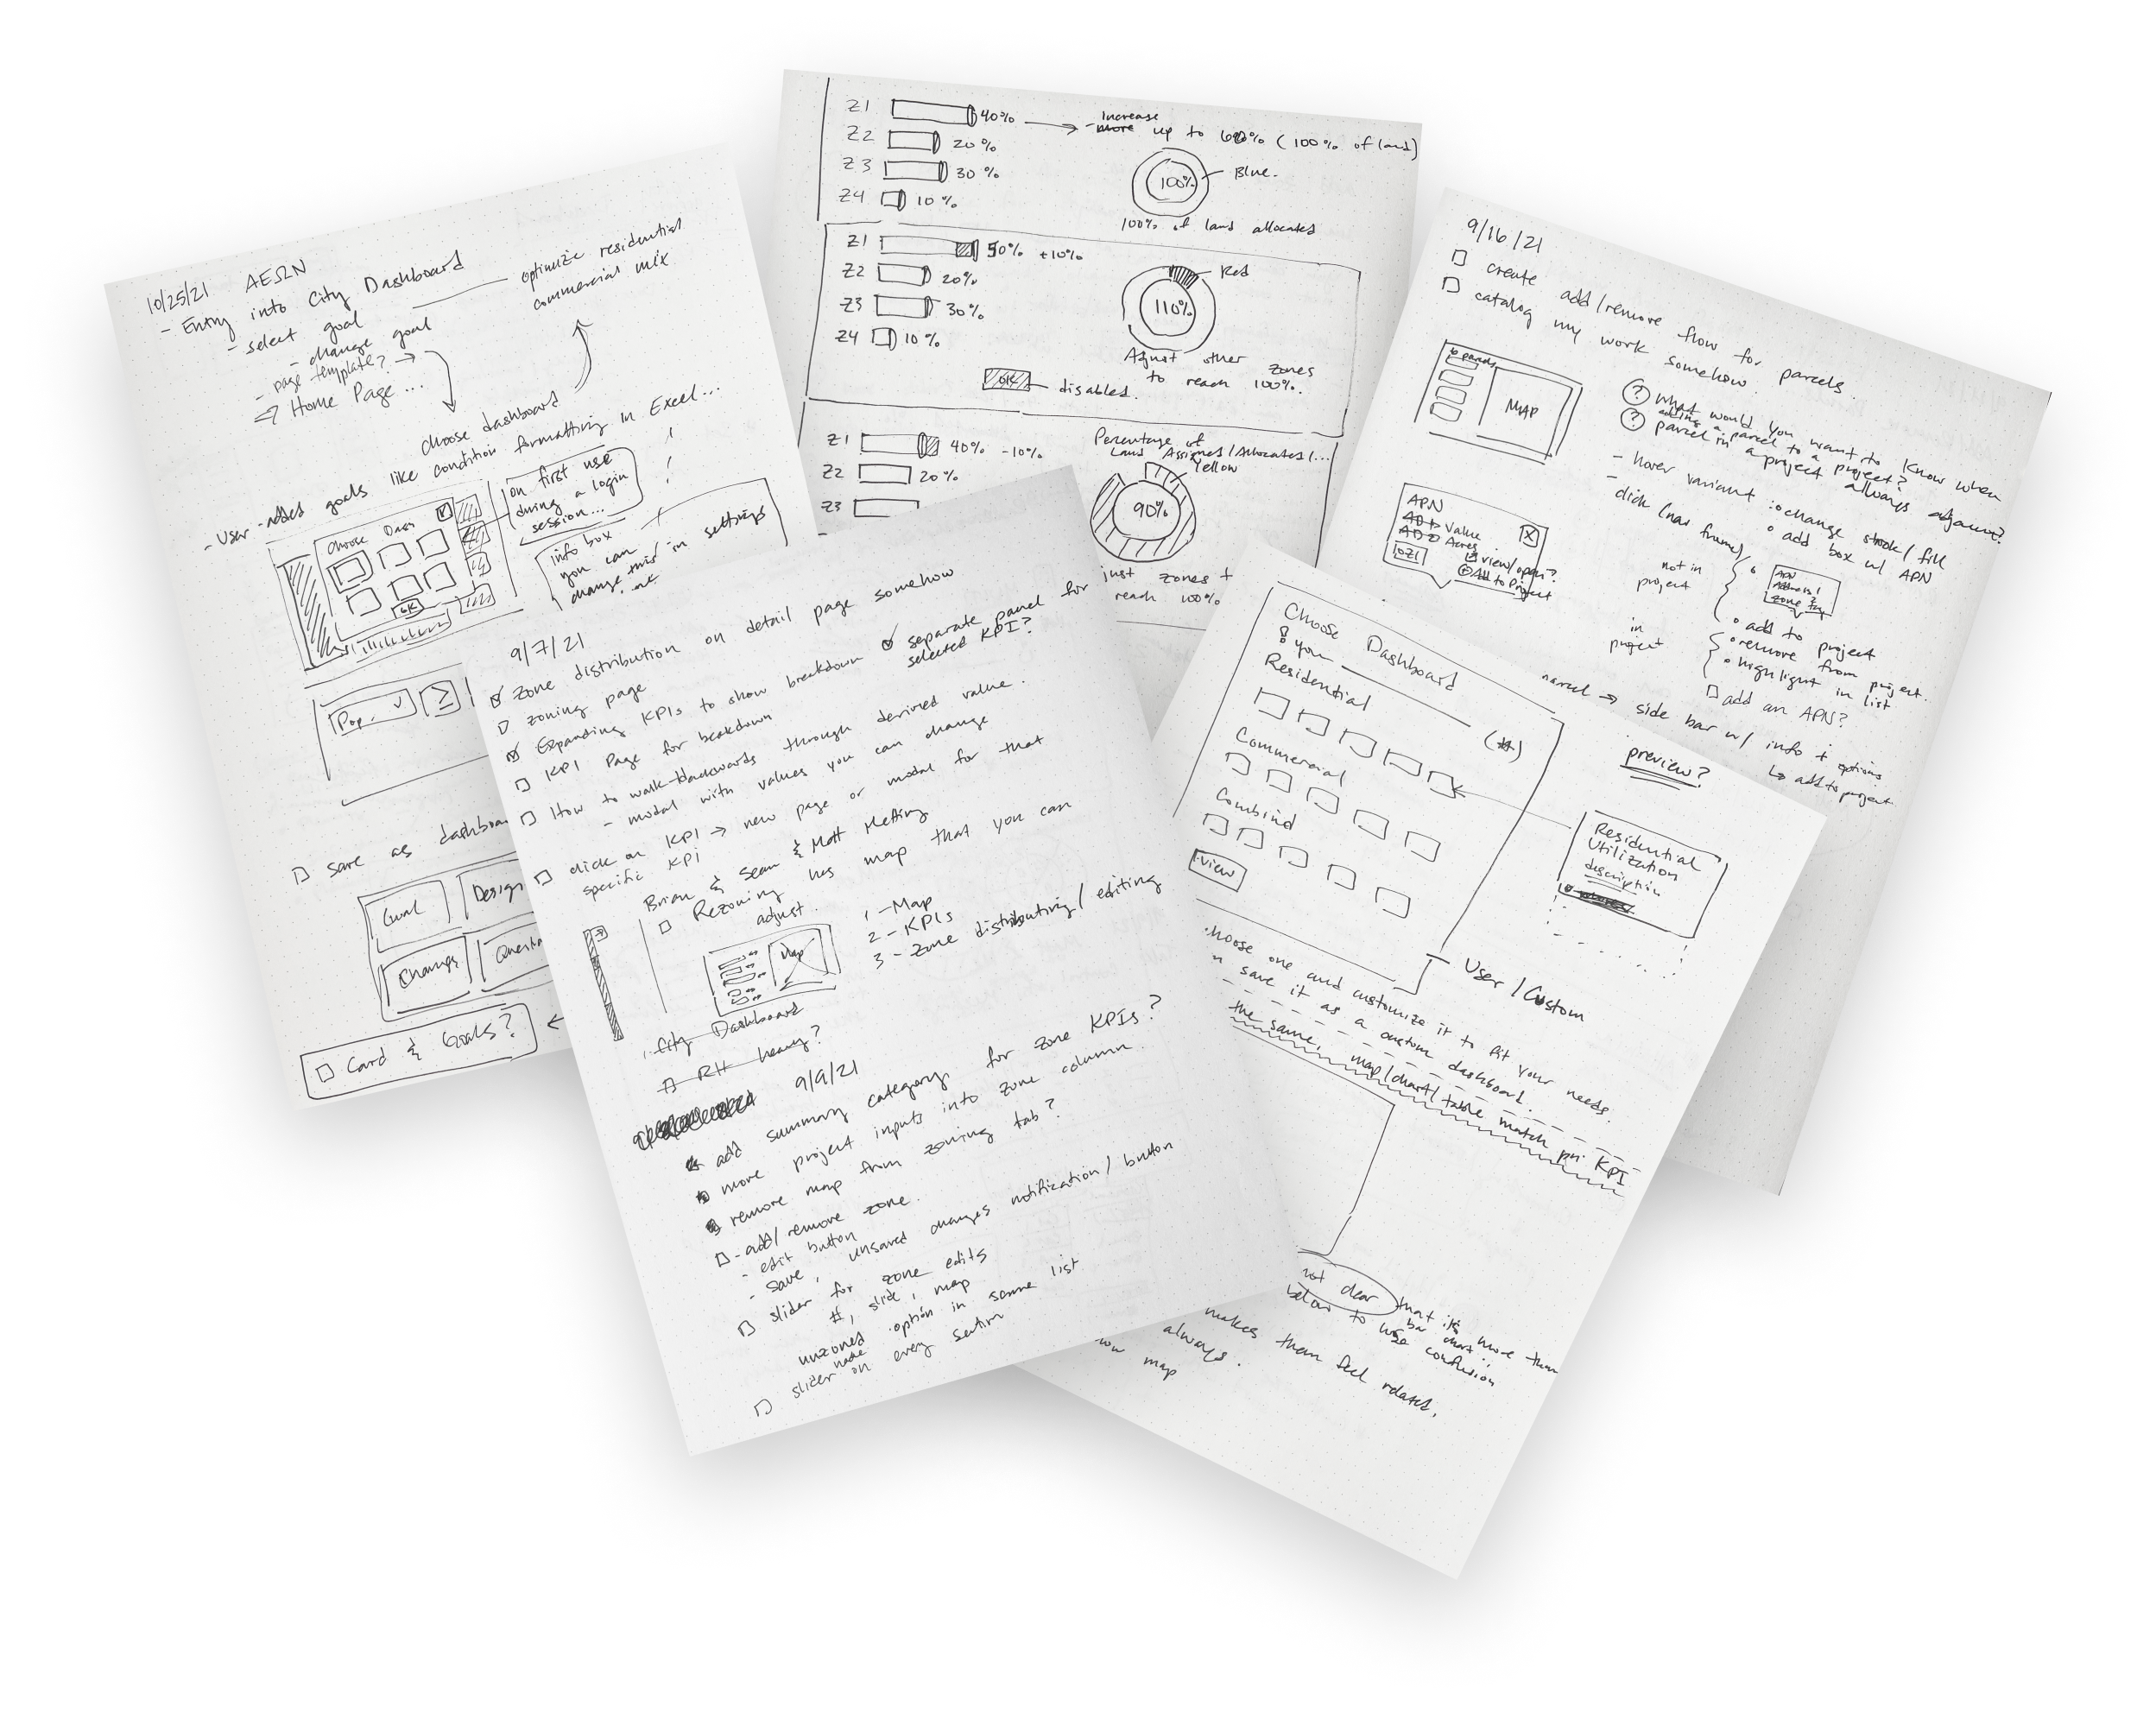 10/25/21 AEΩN
- Entry into City Dashboard
- select goal
optimize residential
commercial mix
- change goal
- page template? →
Home Page ...
choose dashboard
- User-added goals like condition formatting in Excel...
Choose Dash
OK
on first use
during a login
session...
info box
you can
change this in settings
Pop. ≥
save as dashboar
Goal
Design
Change
Card & Goals?
Z1 40% → Increase
more up to 60% (100% of land)
Z2 20%
Z3 30%
Z4 10%
100% Blue.
100% of land allocated
Z1 50% +10%
Z2 20%
Z3 30%
Z4 10%
110% Red
Adjust other zones
to reach 100%.
OK disabled.
Z1 40% -10%
Z2 20%
Z3
Percentage of
Land Assigned/Allocated/...
Yellow
90%
just zones t
reach 100%
9/16/21
create add/remove flow for parcels
catalog my work somehow.
6 parcels
MAP
? What would you want to know when
adding a parcel to a project?
? parcel in a project always adjacent?
- hover variant: change stroke/fill
add box w/ APN
- click (nav frame)
APN
Value
Acres
view/open?
Add to Project
not in
project
APN
add to project
in
project
remove from project
highlight in list
add an APN?
parcel → side bar w/ info + options
↳ add to project
9/7/21
zone distribution on detail page somehow
zoning page
Expanding KPIs to show breakdown
separate panel for
selected KPI?
KPI Page for breakdown
How to walk-backwards through derived value.
- modal with values you can change
click on KPI → new page or modal for that
specific KPI
Brian & Sean & Matt Meeting
Rezoning has map that you can
adjust.
Map
1 - Map
2 - KPIs
3 - zone distributing/editing
City Dashboard
RH heavy?
9/9/21
add summary category for zone KPIs?
more project inputs into zone column.
remove map from zoning tab?
- add/remove zone.
- edit button
- save, unsaved changes notification/button
slider for zone edits
#, slide, map
unzoned option in same list
slider on every section
Choose Dashboard
you
Residential (#)
Commercial
Combind
view
preview?
Residential
Utilization
description
User/Custom
choose one and customize it to fit your needs.
n save it as a custom dashboard.
the same. map/chart/table match pri KPI
not clear that it's more than
bar chart
below to confusion
makes them feel related.
always.
ow map